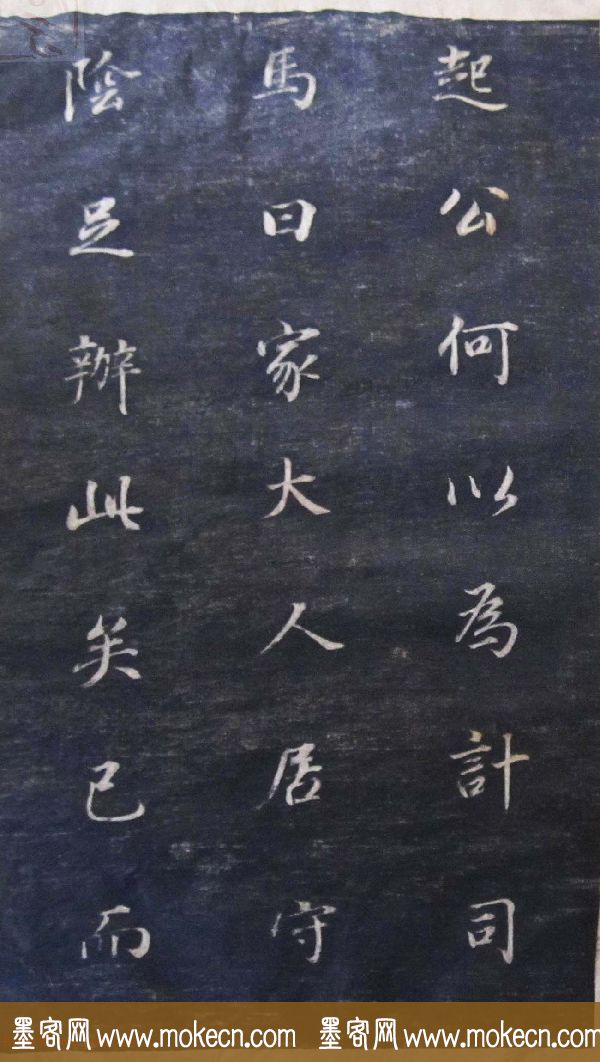 起公何以為計司
馬曰家大人居守
陰足辦此矣已而
墨客网 www.mokecn.com 墨客网 www.mokecn.com